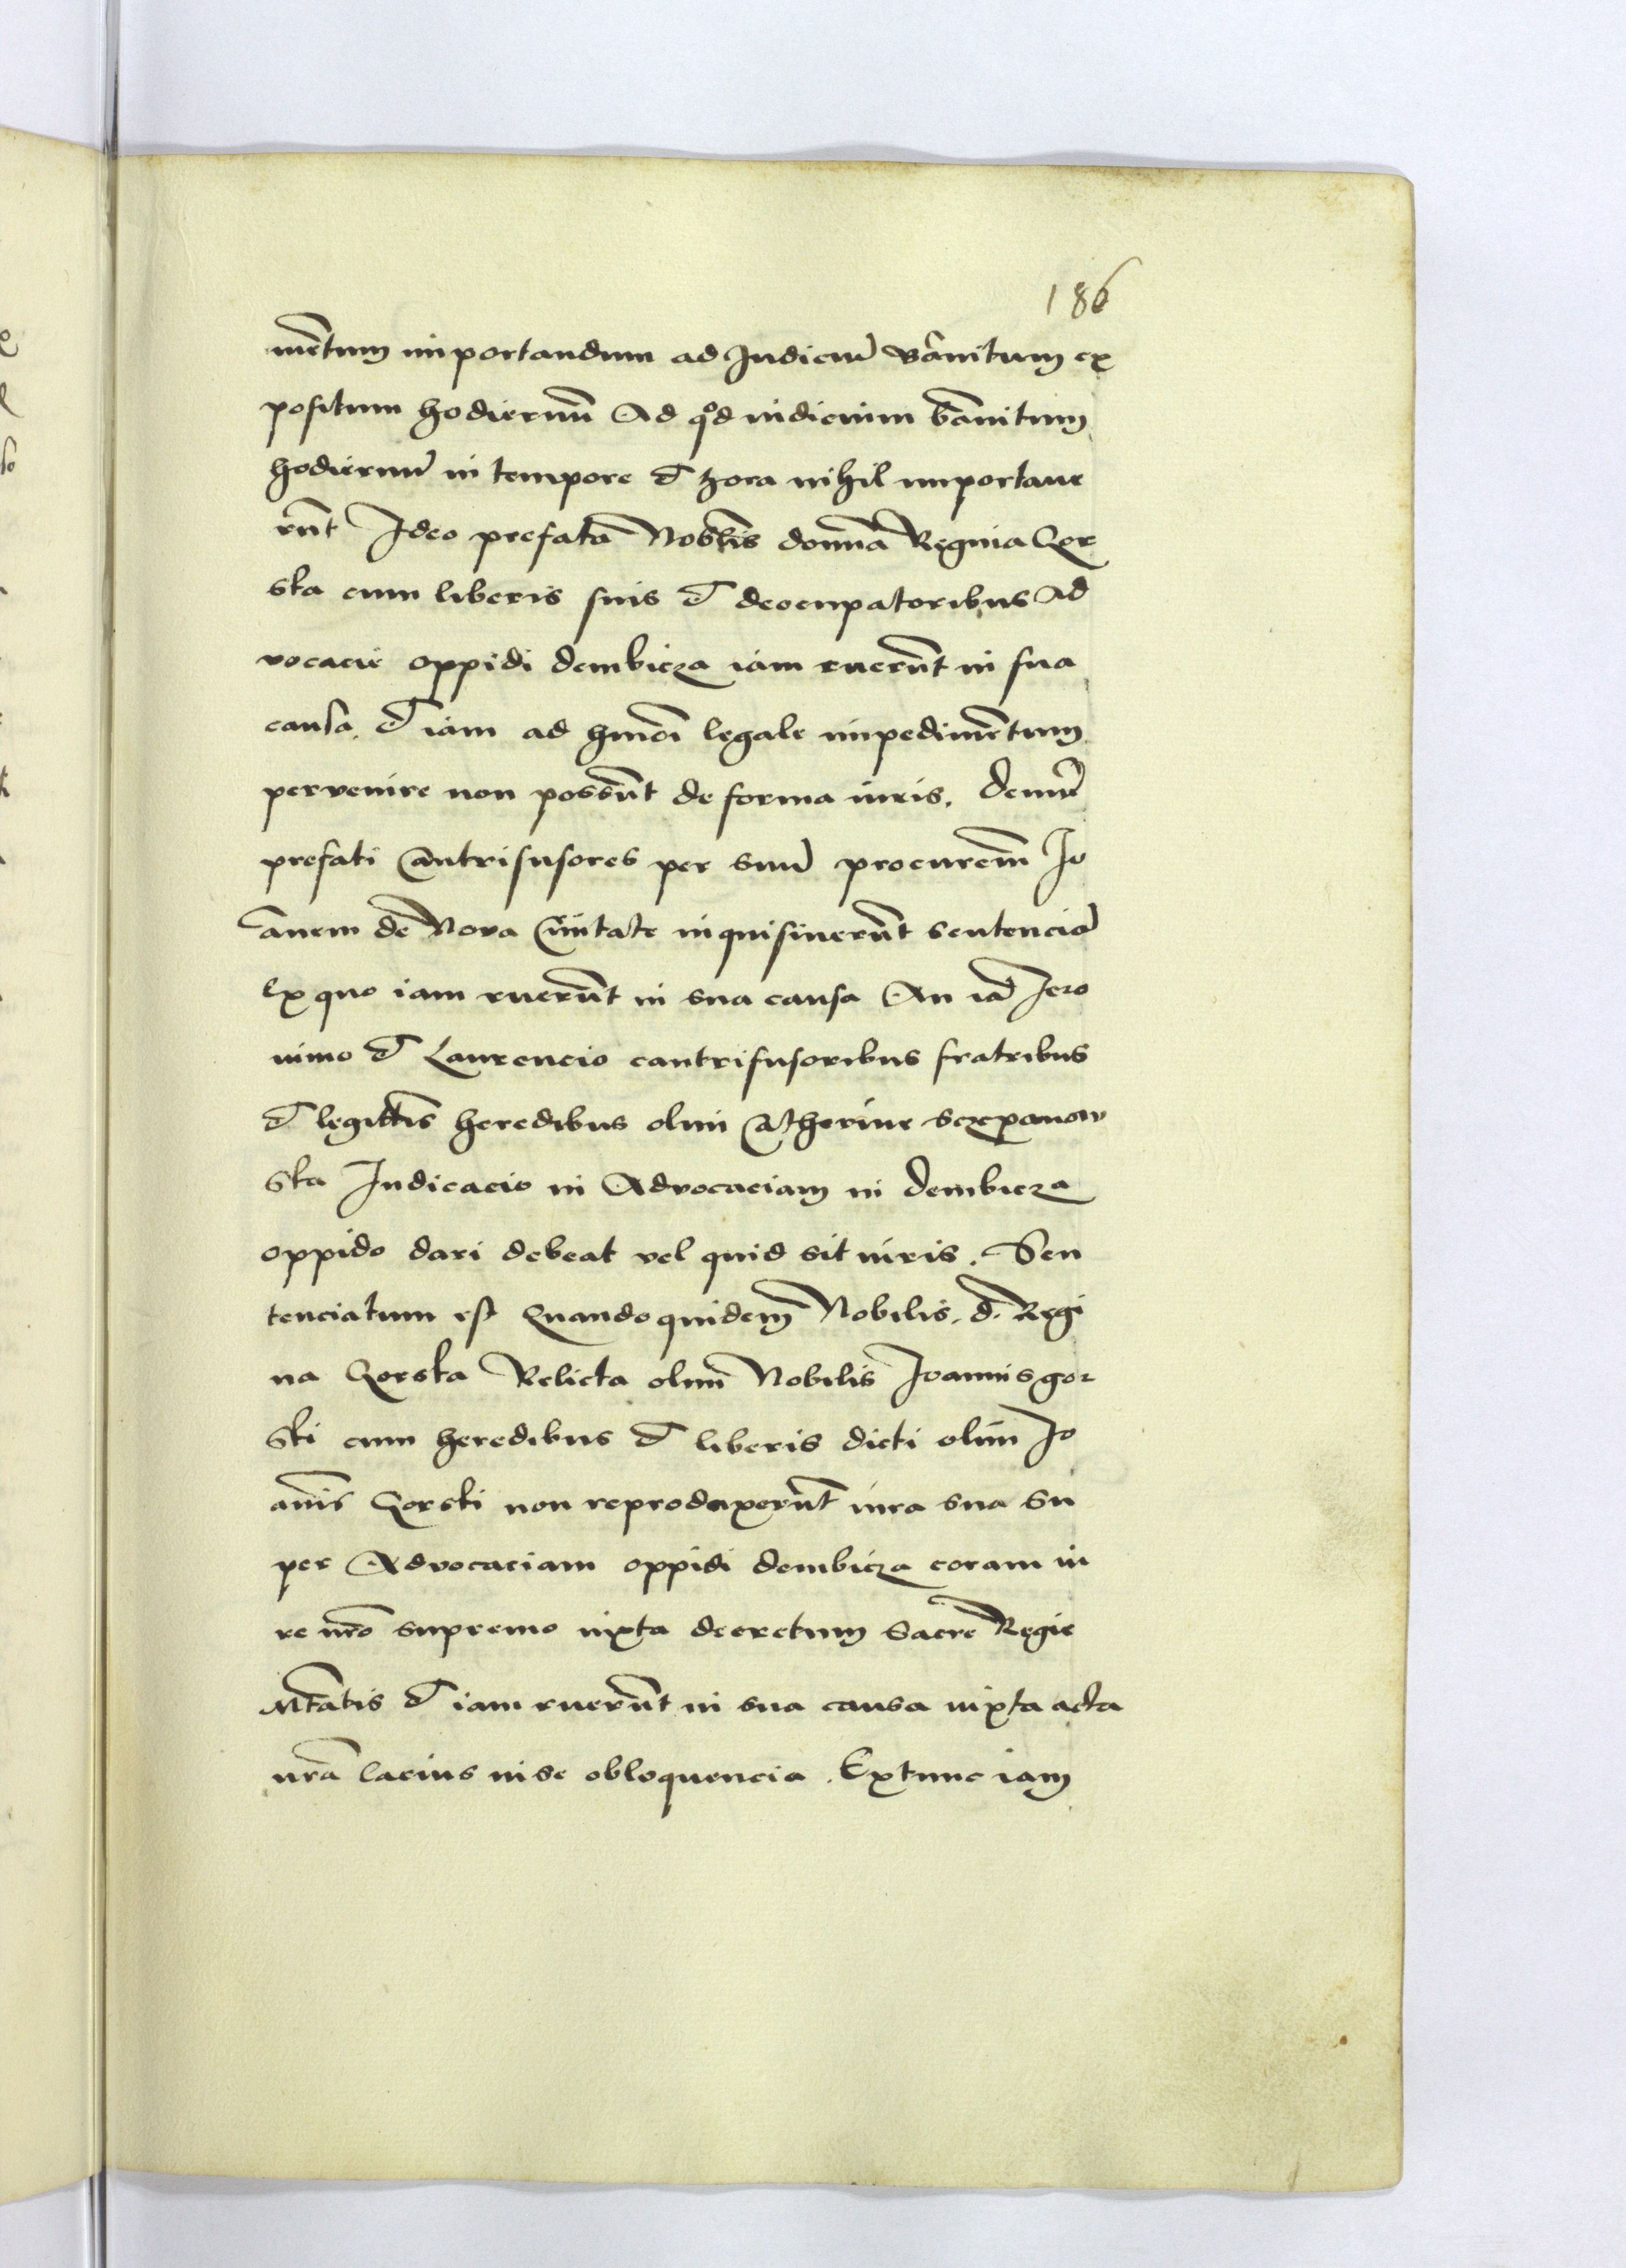 186
mētum importandum ad Iudiciū bānitum ex
positum hodiernū Ad qd iudicium bānitum
hodiernū in tempore et hora nihil importaue
rūt Ideo prefata Nobłis domīa Regina Gor
ska cum liberis suis et deocupatoribus Ad
vocacie oppidi dembicza iam ruerūt in sua
causa et iam ad hmōi legale impedimētum
pervenire non possūt de forma iuris. Demū
prefati Cantrifusores per suū procurem̄ Jo
anem de Nova Civitate inquisiuerūt sentenciā
Ex quo iam ruerūt in sua causa An iā Jero
nimo et Laurencio cantrifusoribus fratribus
et legittīs heredibus olim Catherine sczepanow
ska Iudicacio in Advocaciam in dembicza
oppido dari debeat vel quid sit iuris. Sen
tenciatum est Quandoquidem Nobilis. d. Regi
na Gorska Relicta olim Nobilis Joannis gor
ski cum heredibus et liberis dicti olim Jo
anīs Gorski non reproduxerūt iura sua su
per Advocaciam oppidi dembicza coram iu
re nr̄o supremo iuxta decretum Sacre Regie
Mt̄atis et iam ruerūt in sua causa iuxta acta
nr̄a lacius in se obloquencia. Extunc iam